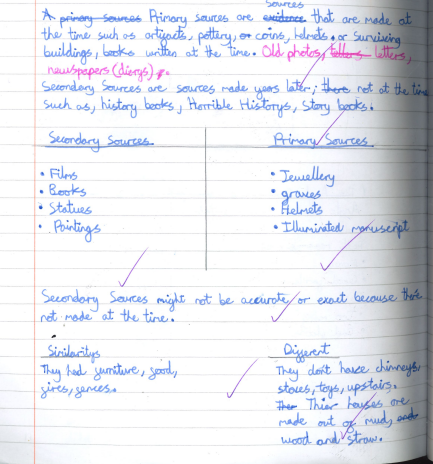 sources
A primary sources Primary sources are evidence that are made at
the time such as artifacts, pottery, or coins, helmets. or surviving
buildings, books written at the time. Old photos, tellers letters,
newspapers (dierys).
Secondary sources are sources made years later; there not at the time
such as, history books, Horrible Historys, Story books.
Secondary Sources
• Films
• Books
• Statues
• Paintings
Primary Sources
• Jewellery
• graves
• Helmets
• Illuminated manuscript
Secondary Sources might not be accurate or exact because there
not made at the time.
Similaritys
They had furniture, food,
fires, fences.
Different
They don't have chimneys,
stoves, toys, upstairs.
Ther Thier houses are
made out of mud, and
wood and straw.